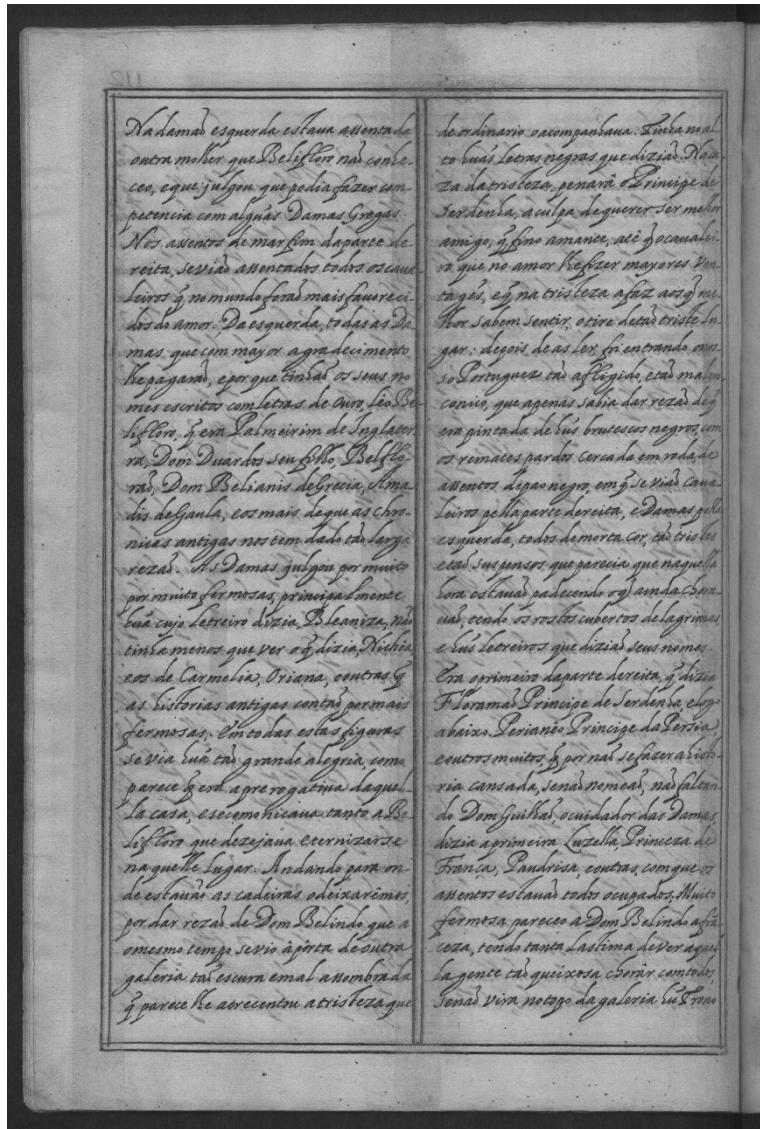 Na damaõ esquerda estaua assentada
outra molher que Belifloro naõ conhe-
ceo, e que julgou que podia fazer com-
petencia com algũas Damas Gregas.
Nos assentos de marfim da parte de
reita, se viaõ assentados todos os caua-
leiros q̃ no mundo foraõ mais fauoreci
dos do amor. Da esquerda, todas as Da
mas, que com mayor agradecimento
lhe pagaraõ, e por que tinhaõ os seus no
mes escritos com letras de Ouro, leo Be-
lifloro, q̃ era Palmeirim de Inglater-
ra, Dom Duardos seu filho, Belflo-
raõ, Dom Belianis de Grecia, Ama
dis de Gaula, e os mais de que as chro-
nicas antigas nos tem dado taõ larga
rezaõ. As Damas julgou por muito
por muito fermosas, principalmente
hũa cujo letreiro dizia, Bleaniza, naõ
tinha menos que ver o q̃ dizia, Nichia
eos de Carmelia, Oriana, e outras q̃
as historias antigas contaõ por mais
fermosas, Em todas estas figuras
se via hũa taõ grande alegria, como
parece q̃ era a prerogatiua daquel-
la casa, e se comonicaua tanto a Be-
lifloro que dezejaua eternizarse
naquelle lugar. Andando para on-
de estauaõ as cadeiras o deixarêmos,
por dar rezaõ de Dom Belindo que a
o mesmo tempo se vio â pórta de outra
galeria taõ escura e mal assombrada
q̃ parece lhe acrecentou a tristeza que
de ordinario o acompanhaua. Tinha no al
to hũas letras negras que diziaõ. Na ca-
za da tristeza, penarâ o Principe de
Serdenha, a culpa de querer ser melhor
amigo, q̃ fino amante, atê q̃ o caualei-
ro que no amor lhe fizer mayores ven-
tagẽs, e q̃ na tristeza a faz aos q̃ me-
lhor sabem sentir, o tire de taõ triste lu-
gar: depois de as ler, foi entrando o nos-
so Portuguez taõ afligido, e taõ malen-
conico, que apenas sabia dar rezaõ de q̃
era pintada de hũs brutescos negros, com
os remates pardos cercada em roda, de
assentos de pao negro, em q̃ se viaõ Caua
leiros pella parte dereita, e Damas pella
esquerda, todos de morta cor, taõ tristes
e taõ suspensos que parecia que naquella
hora estauaõ padecendo o q̃ ainda chora
uaõ, tendo os rostos cubertos de lagrimas
e hũs letreiros que diziaõ seus nomes.
Era o primeiro da parte dereita, q̃ dizia
Floramaõ Principe de Serdenha, e logo
abaixo. Perianeo Principe da Persia,
e outros muitos, q̃ por naõ se fazer a histo-
ria cansada, se naõ nomeaõ, naõ faltan-
do Dom Guilhaõ, o cuidador das Damas,
dizia a primeira Luzella, Princeza de
França, Paudrisa, e outras, com que os
assentos estauaõ todos ocupados, Muito
fermosa pareceo a Dom Belindo a frã-
ceza, tendo tanta lastima de ver aquel
la gente taõ queixosa chorâr com todos,
senaõ vira no topo da galeria hũ Trono